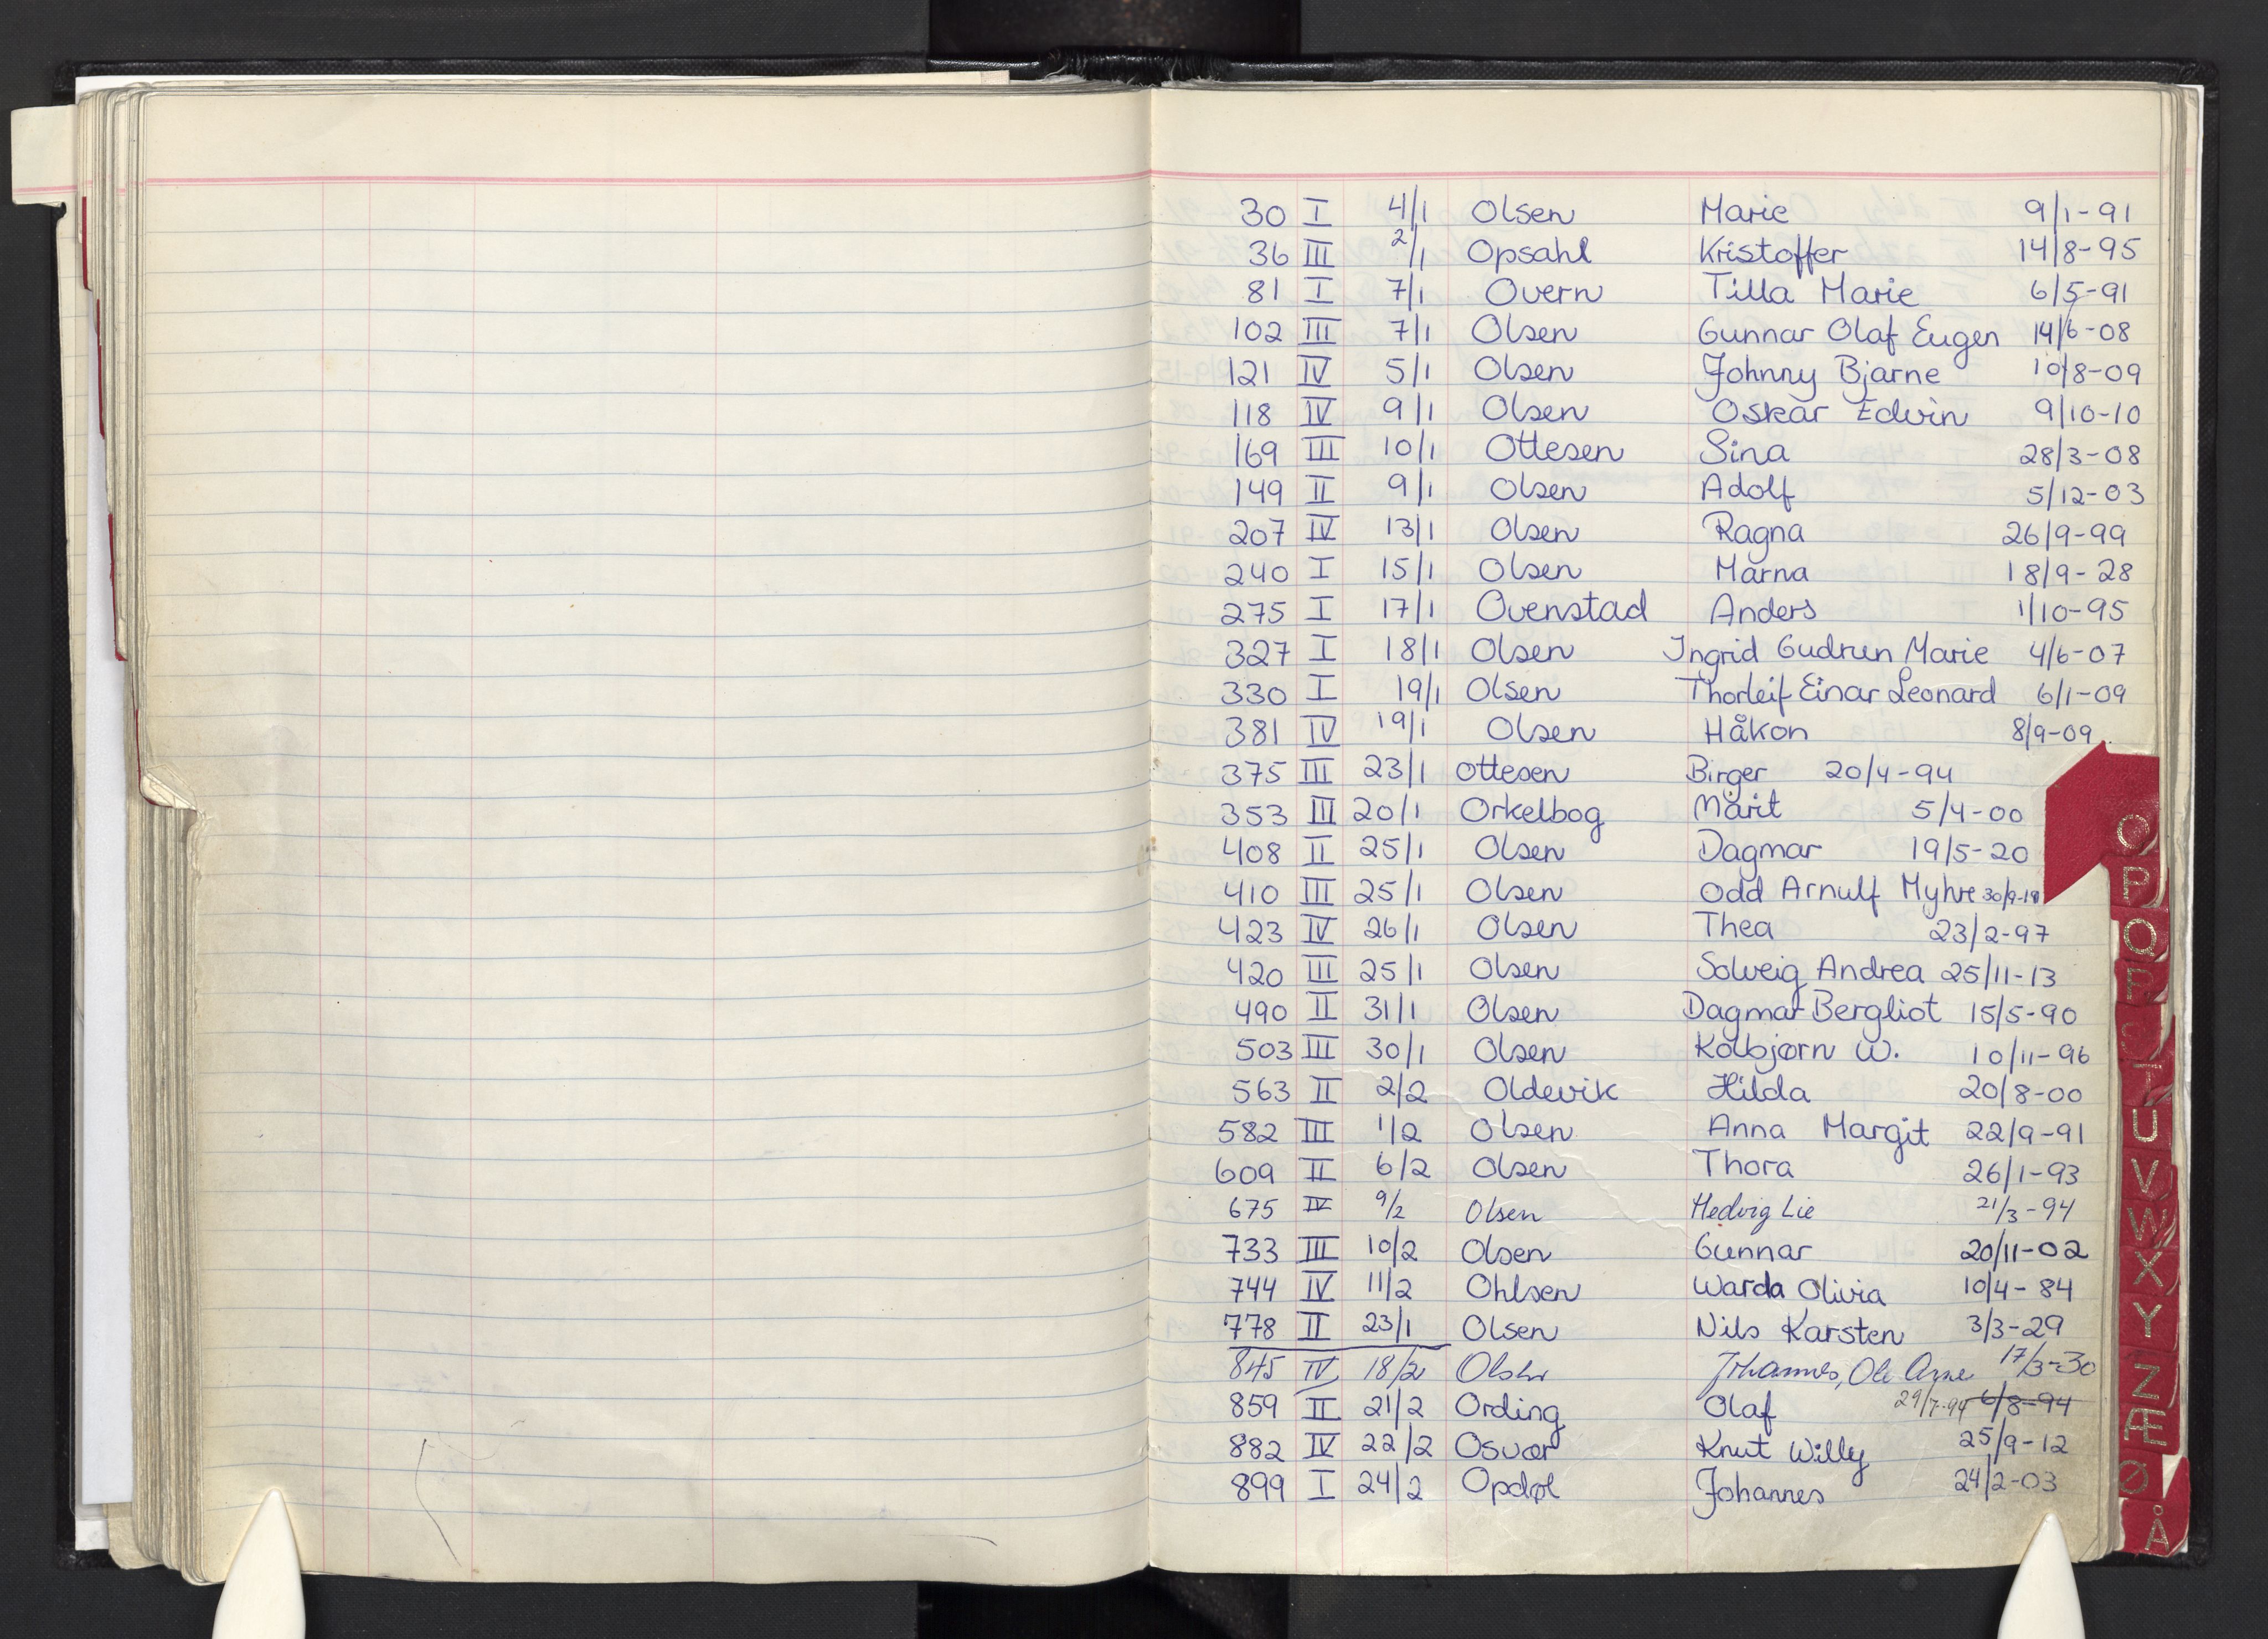 30 I 4/1 Olsen Marie 9/1-91
36 III 2/1 Opsahl Kristoffer 14/8-95
81 I 7/1 Overn Tilla Marie 6/5-91
102 III 7/1 Olsen Gunnar Olaf Eugen 14/6-08
121 IV 5/1 Olsen Johnny Bjarne 10/8-09
118 IV 9/1 Olsen Oskar Edvin 9/10-10
169 III 10/1 Ottesen Sina 28/3-08
149 II 9/1 Olsen Adolf 5/12-03
207 IV 13/1 Olsen Ragna 26/9-99
240 I 15/1 Olsen Marna 18/9-28
275 I 17/1 Ovenstad Anders 1/10-95
327 I 18/1 Olsen Ingrid Gudrun Marie 4/6-07
330 I 19/1 Olsen Thorleif Einar Leonard 6/1-09
381 IV 19/1 Olsen Håkon 8/9-09
375 III 23/1 Ottesen Birger 20/4-94
353 III 20/1 Orkelbog Marit 5/4-00
408 II 25/1 Olsen Dagmar 19/5-20
410 III 25/1 Olsen Odd Arnulf Myhre
423 IV 26/1 Olsen Thea 23/2-97
420 III 25/1 Olsen Solveig Andrea 25/11-13
490 II 31/1 Olsen Dagmar Bergliot 15/5-90
503 III 30/1 Olsen Kolbjørn W. 10/11-96
563 II 2/2 Oldevik Hilda 20/8-00
582 III 1/2 Olsen Anna Margit 22/9-91
609 II 6/2 Olsen Thora 26/1-93
675 IV 9/2 Olsen Hedvig Lie 21/3-94
733 III 10/2 Olsen Gunnar 20/11-02
744 IV 11/2 Ohlsen Warda Olivia 10/4-84
778 II 23/1 Olsen Nils Karsten 3/3-29
845 IV 18/2 Olsen Johannes, Ole Arne 17/3-30
859 II 21/2 Ording Olaf 29/7-94 6/8-94
882 IV 22/2 Osvær Knut Willy 25/9-12
899 I 24/2 Opdøl Johannes 24/2-03
O
P
Q
R
T
U
V
W
X
Y
Z
Æ
Ø
Å